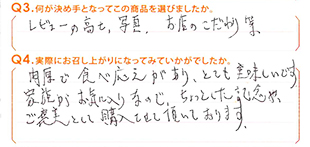 Q3.何が決め手となってこの商品を選びましたか。
レビューの高さ、写真、お店のこだわり等
Q4.実際にお召し上がりになってみていかがでしたか。
肉厚で食べ応えがあり、とても美味しいです
家族がお気に入りなので、ちょっとした記念や、
ご褒美として購入させて頂いております。